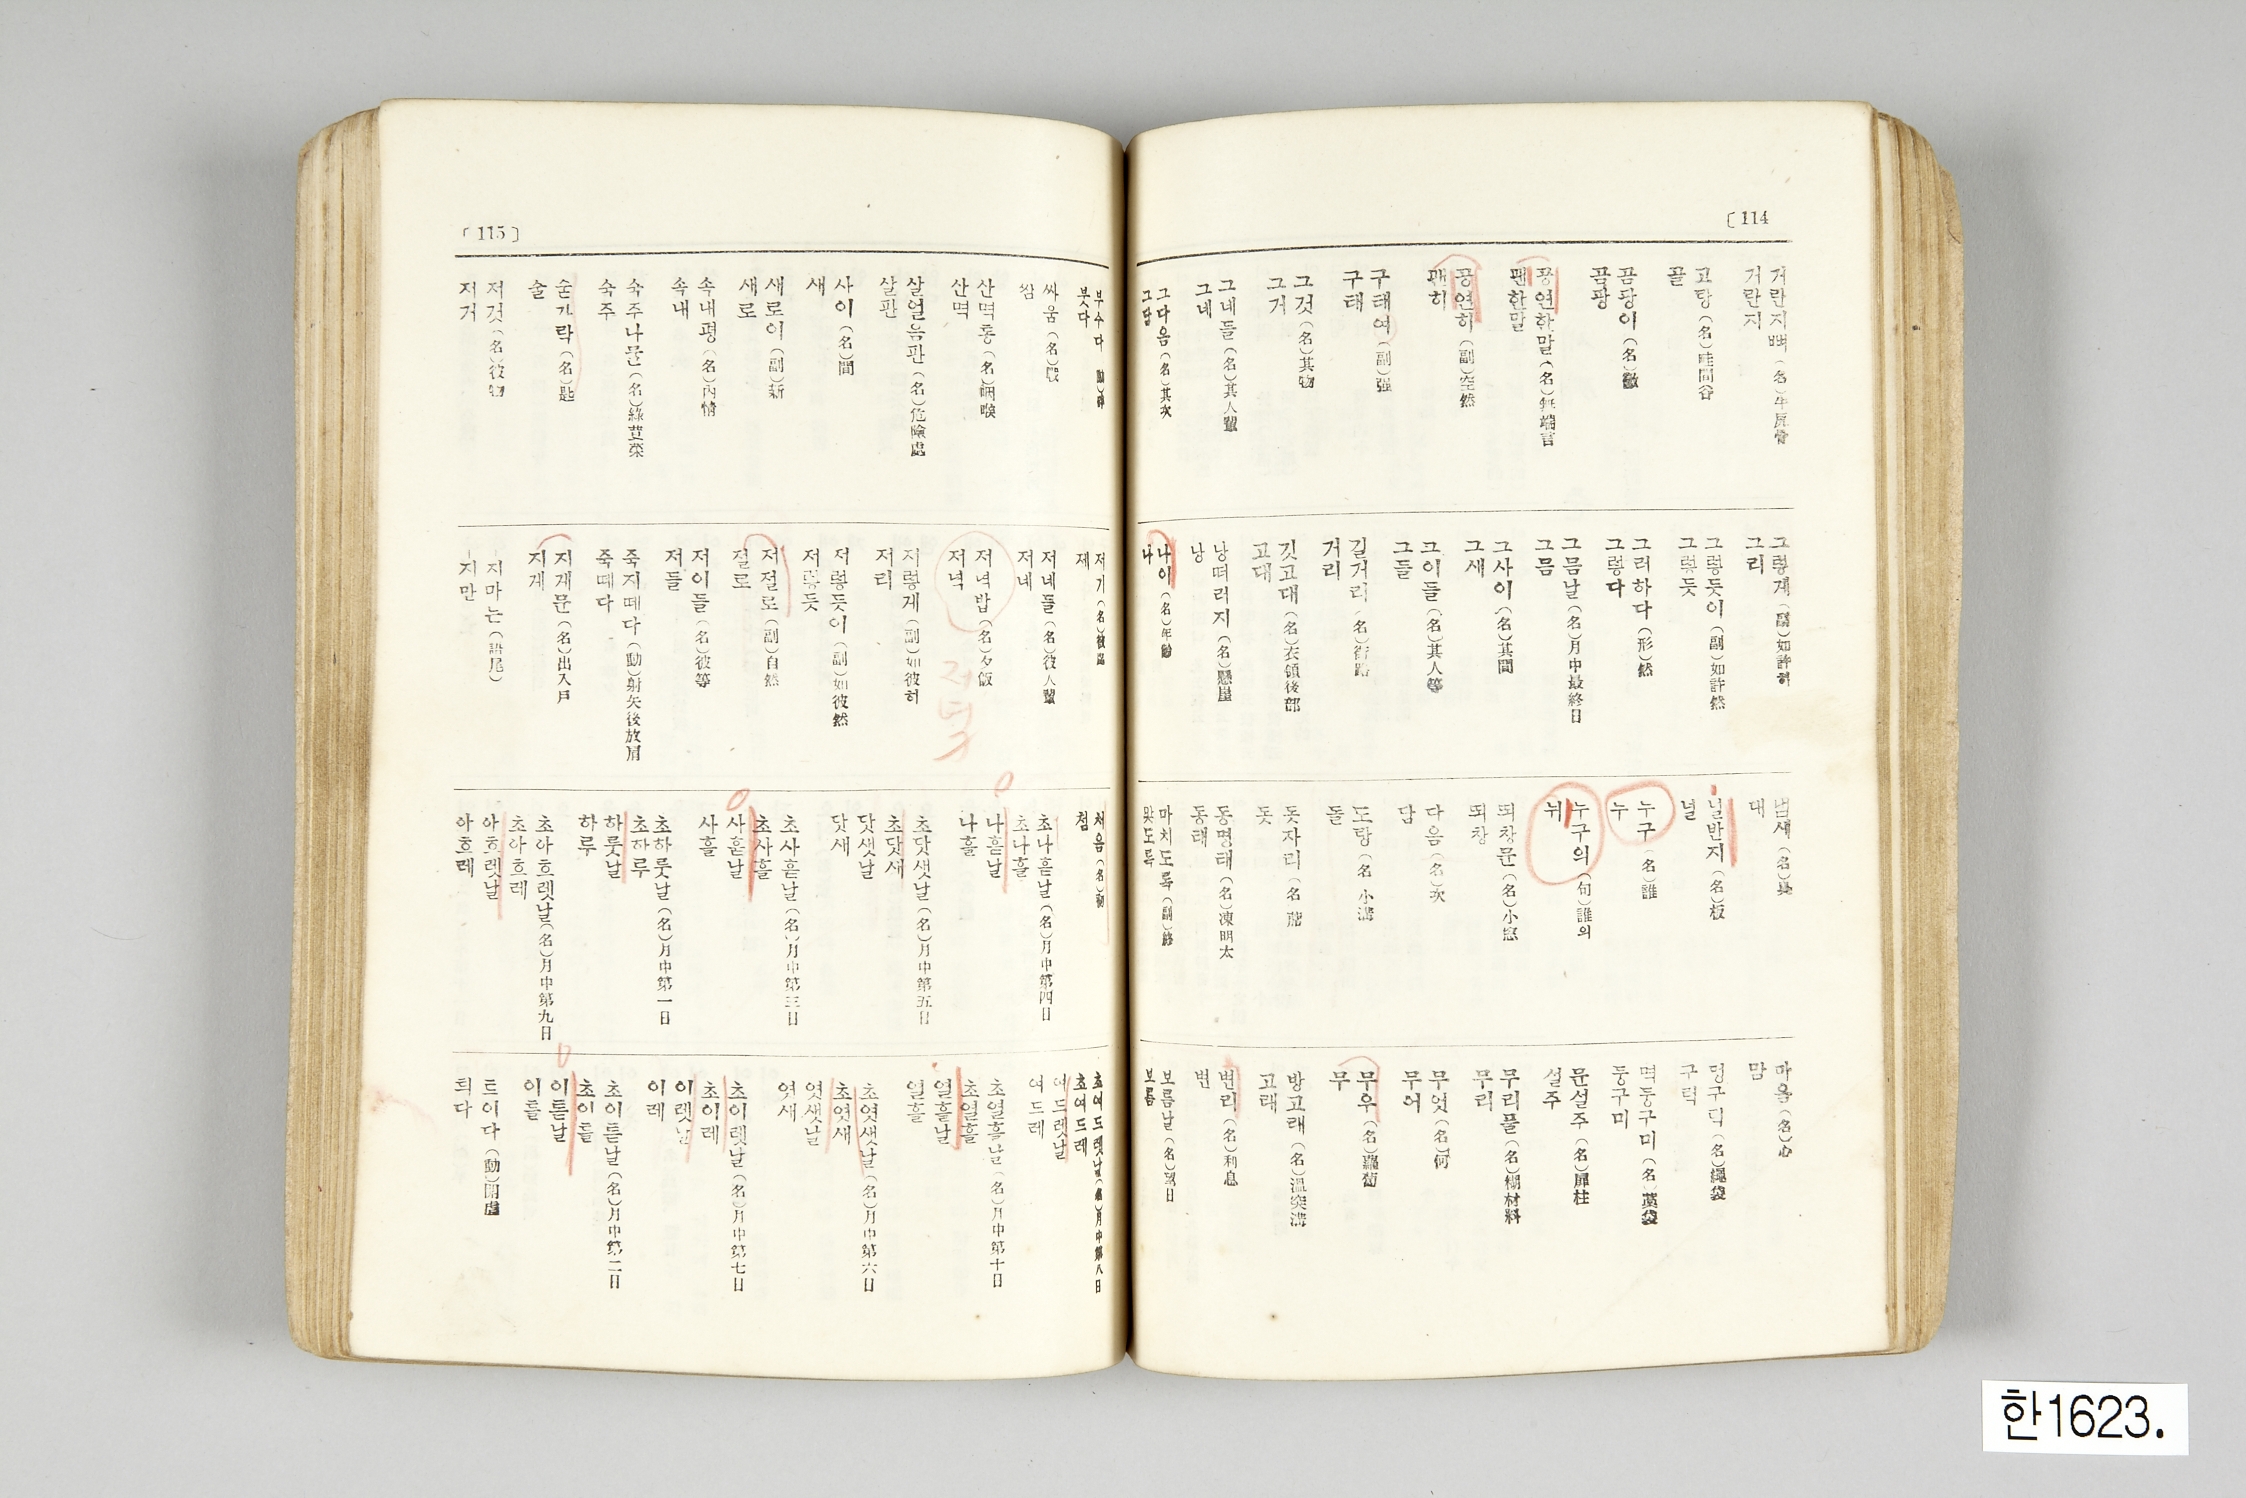 〔114
거란지뼈 (名)牛尻骨
거란지
고랑 (名)畦間谷
골
곰팡이 (名)黴
곰팡
공연한말 (名)無端言
괜한말
공연히 (副)空然
괜히
구태여 (副)强
구태
그것 (名)其物
그거
그네들 (名)其人輩
그네
그다음 (名)其次
그담
그렇게 (副)如許히
그리
그렇듯이 (副)如許然
그렇듯
그러하다 (形)然
그렇다
그믐날 (名)月中最終日
그믐
그사이 (名)其間
그새
그이들 (名)其人等
그들
길거리 (名)街路
거리
깃고대 (名)衣領後部
고대
낭떠러지 (名)懸崖
낭
나이 (名)年齡
나
냄새 (名)臭
내
널반지 (名)板
널
누구 (名)誰
누
누구의 (句)誰의
뉘
되창문 (名)小窓
되창
다음 (名)次
담
도랑 (名)小溝
돌
돗자리 (名)
돗
동명태 (名)凍明太
동태
마치도록 (副)終
맟도록
마음 (名)心
맘
덩구럭 (名)繩袋
구럭
멱둥구미 (名)藁袋
둥구미
문설주 (名)扉柱
설주
무리풀 (名)糊材料
무리
무엇 (名)何
무어
무우 (名)蘿蔔
무
방고래 (名)溫突溝
고래
변리 (名)利息
변
보름날 (名)望日
보름
〔115〕
부수다 (動)碎
붓다
싸움 (名)鬪
쌈
산멱통 (名)咽喉
산멱
살얼음판 (名)危險處
살판
사이 (名)間
새
새로이 (副)新
새로
속내평 (名)內情
속내
숙주나물 (名)綠荳菜
숙주
숟가락 (名)匙
술
저것 (名)彼物
저거
저기 (名)彼處
제
저네들 (名)彼人輩
저네
저녁밥 (名)夕飯
저녁
저녁
저렇게 (副)如彼히
저리
저렇듯이 (副)如彼然
저렇듯
저절로 (副)自然
절로
저이들 (名)彼等
저들
죽지떼다 (動)射矢後放肩
죽떼다
지게문 (名)出入戶
지게
-지마는 (語尾)
-지만
처음 (名)初
첨
초나흗날 (名)月中第四日
초나흘
나흗날
나흘
초닷샛날 (名)月中第五日
초닷새
닷샛날
닷새
초사흗날 (名)月中第三日
초사흘
사흗날
사흘
초하룻날 (名)月中第一日
초하루
하룻날
하루
초아흐렛날 (名)月中第九日
초아흐레
아흐렛날
아흐레
초여드렛날 (名)月中第八日
초여드레
여드렛날
여드레
초열흘날 (名)月中第十日
초열흘
열흘날
열흘
초엿샛날 (名)月中第六日
초엿새
엿샛날
엿새
초이렛날 (名)月中第七日
초이레
이렛날
이레
초이튿날 (名)月中第二日
초이틀
이튿날
이틀
트이다 (動)開處
틔다
한1623.